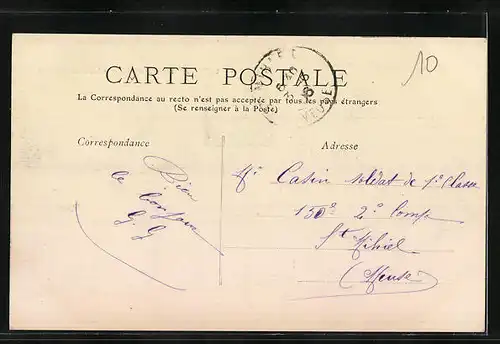 10
CARTE POSTALE
La Correspondance au recto n'est pas acceptée par tous les pays étrangers
(Se renseigner à la Poste)
Correspondance
Adresse
Bien
le bonjour
G. G
Mr Casin soldat de 1e Classe
150e 2e Comp
St Mihiel
(Meuse)